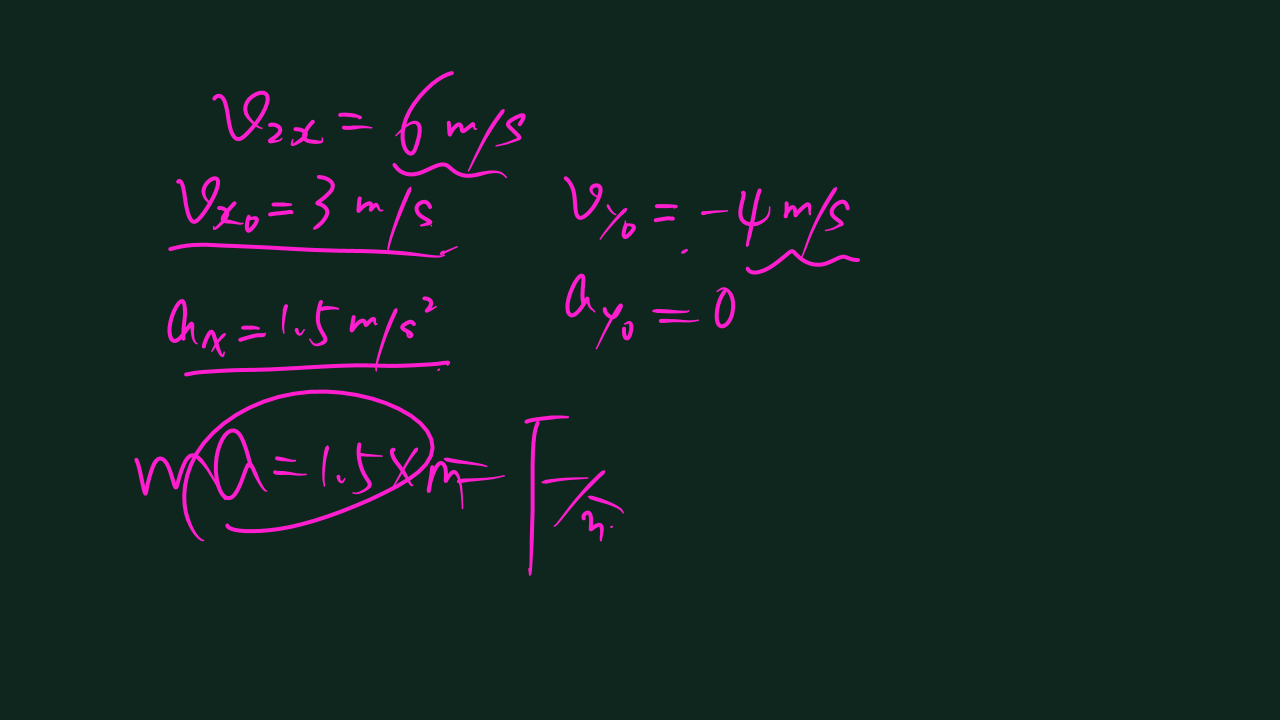 v₂ₓ = 6 m/s
vₓ₀ = 3 m/s
v_y₀ = -4 m/s
aₓ = 1.5 m/s²
a_y₀ = 0
ma = 1.5 × m